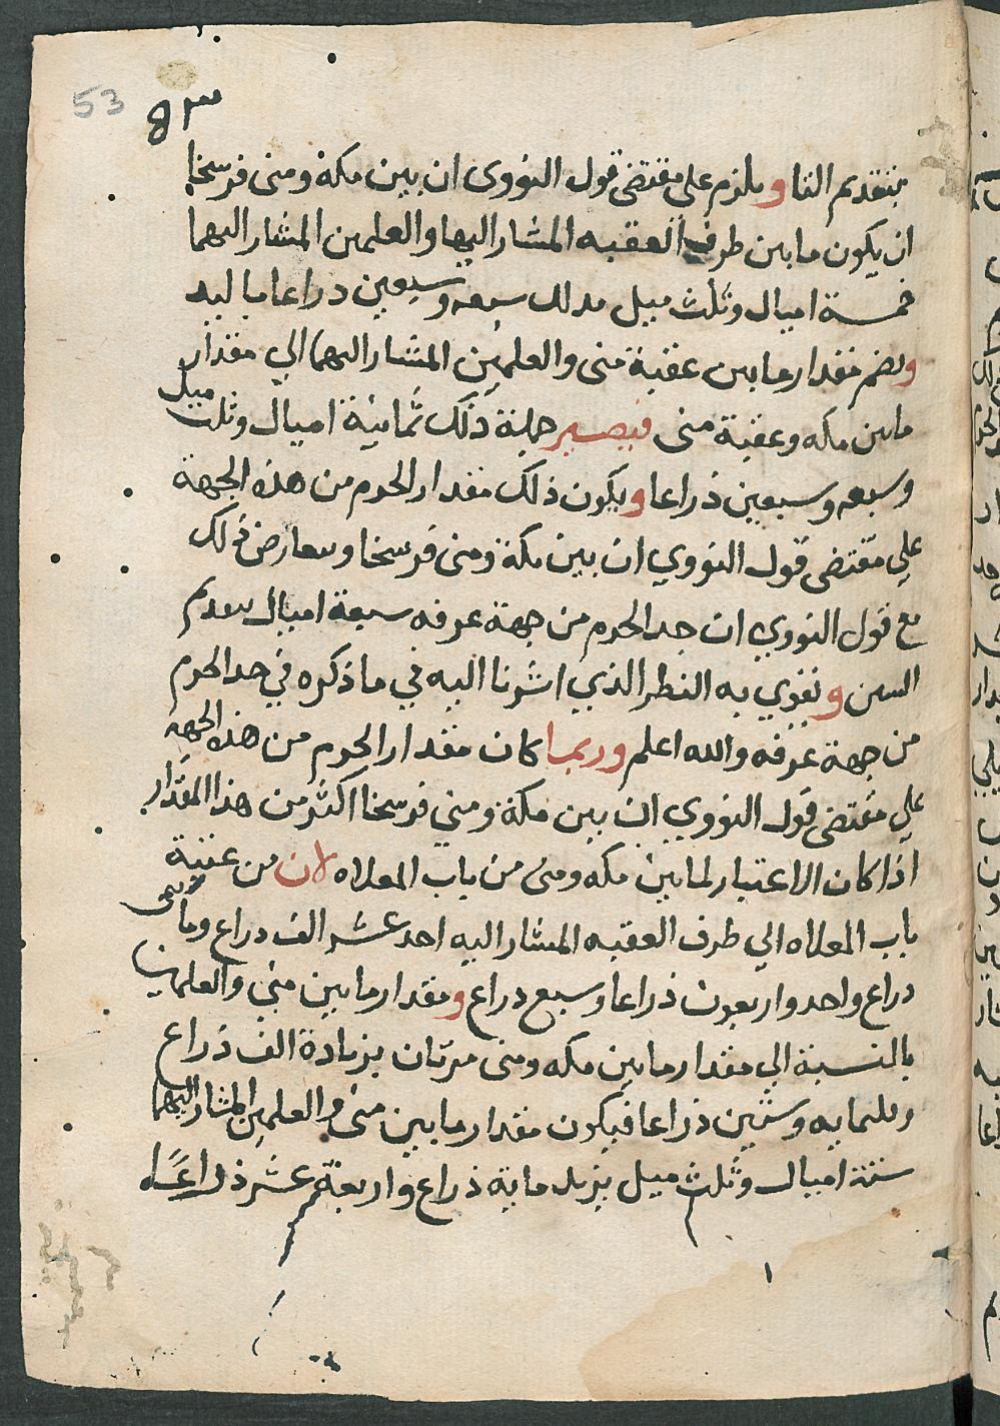 53
بتقديم التا ويلزم على مقتضى قول النووى ان بين مكة ومنى فرسخا
ان يكون ما بين طرف العقبه المشار اليها والعلمين المشار اليهما
خمسة اميال وثلث ميل سبعه وسبعين دراعا باليد
ويضم مقدار ما بين عقبة منى والعلمين المشار اليهما الي مقدار
مابين مكه وعقبة منى فيصير جملة ذلك ثمانية اميال وثلث ميل
وسبعه وسبعين ذراعا ويكون ذلك مقدار الحرم من هذه الجهة
علي مقتضى قول النووي ان بين مكة ومنى فرسخا ويعارض ذلك
مع قول النووي ان حد الحرم من جهة عرفه سبعة اميال بتقديم
السين ونقوي به النظر الذي اشرنا اليه في ما ذكره في حد الحرم
من جهة عرفه والله اعلم وربما كان مقدار الحرم من هذه الجهة
علي مقتضى قول النووي ان بين مكة ومني فرسخا اكثر من هذا المقدار
اذا كان الاعتبار لما بين مكه ومنى من باب المعلاه لان من عتبة
باب المعلاه الي طرف العقبه المشار اليه احد عشر الف دراع ومأتى
دراع واحد واربعون ذراعا وسبع دراع ومقدار ما بين مني والعلمين
بالنسبة الي مقدار ما بين مكه ومنى مرتان بزيادة الف ذراع
وثلمايه وستين ذراعا فيكون مقدار ما بين منى والعلمين المشار اليهما
ستة اميال وثلث ميل يزيد ماية ذراع واربعة عشر ذراعا